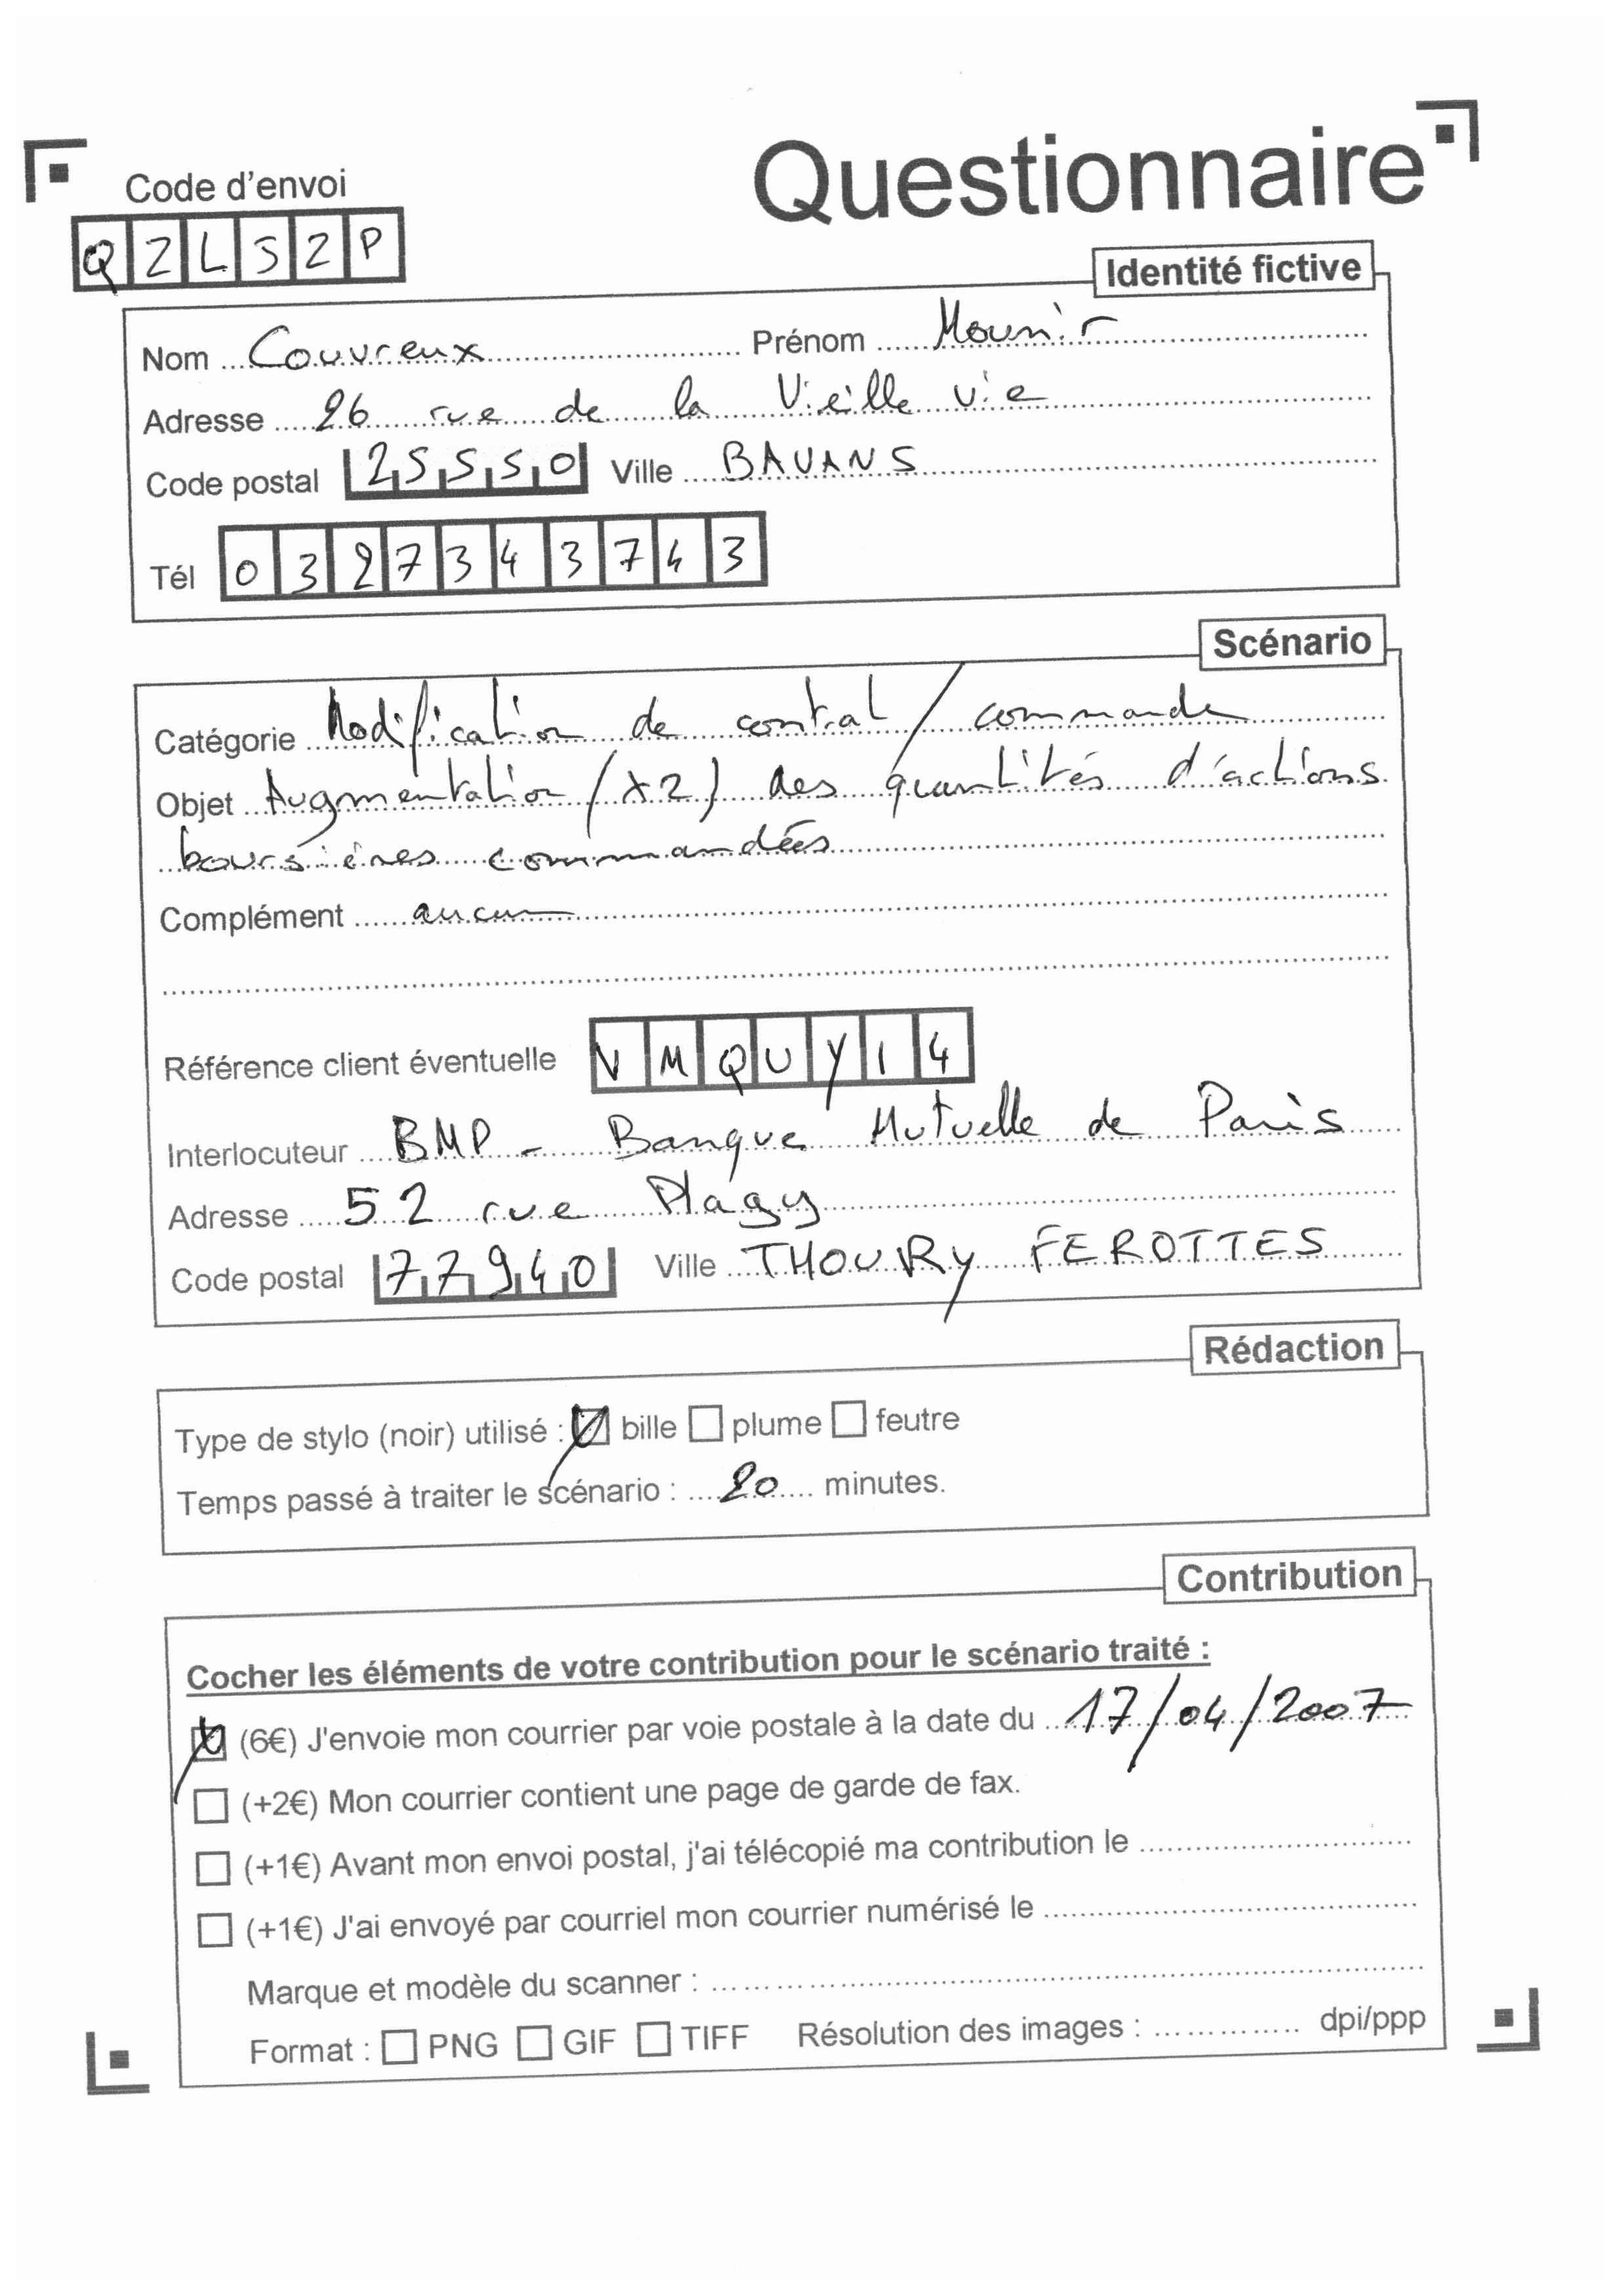 Questionnaire
Code d'envoi
QZLS2P
Identité fictive
Nom Couvreux Prénom Mounir
Adresse 26 rue de la Vieille vie
Code postal 25550 Ville BAVANS
Tél 0327343743
Scénario
Catégorie Modification de contrat / commande
Objet Augmentation (x2) des quantités d'actions
boursières commandées
Complément aucun
Référence client éventuelle VMQUY14
Interlocuteur BMP - Banque Mutuelle de Paris
Adresse 52 rue Plagy
Code postal 77940 Ville THOURY FEROTTES
Rédaction
Type de stylo (noir) utilisé : bille plume feutre
Temps passé à traiter le scénario : 20 minutes.
Contribution
Cocher les éléments de votre contribution pour le scénario traité :
(6€) J'envoie mon courrier par voie postale à la date du 17/04/2007
(+2€) Mon courrier contient une page de garde de fax.
(+1€) Avant mon envoi postal, j'ai télécopié ma contribution le
(+1€) J'ai envoyé par courriel mon courrier numérisé le
Marque et modèle du scanner :
Format : PNG GIF TIFF Résolution des images : dpi/ppp